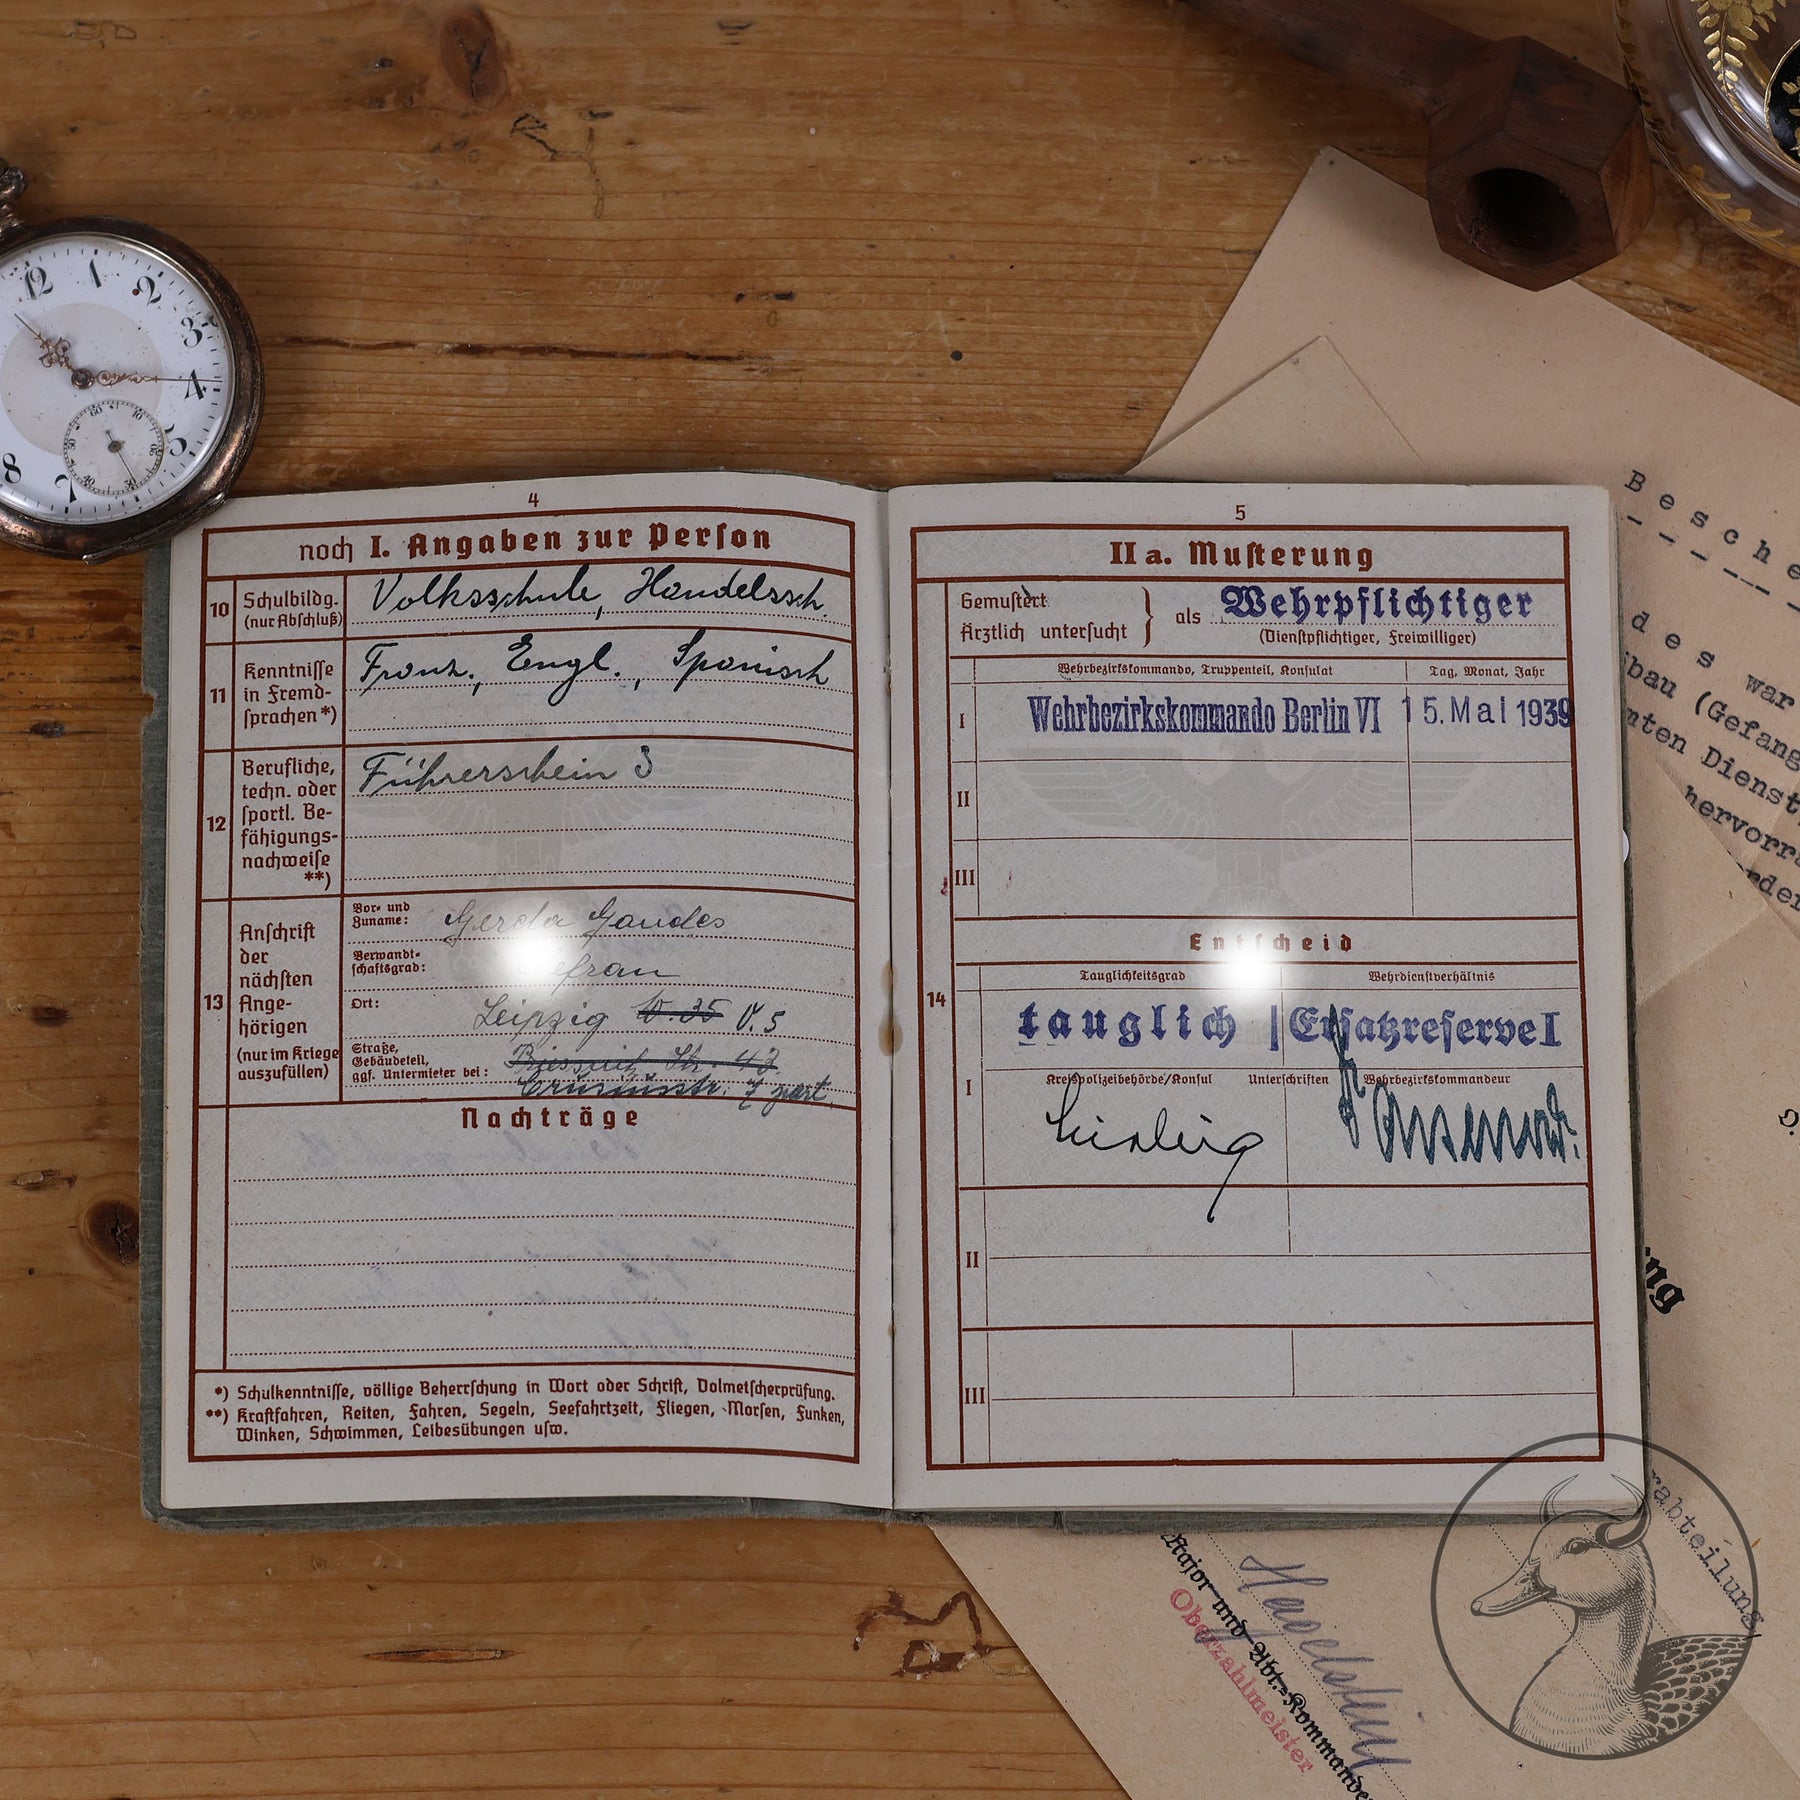 4
noch I. Angaben zur Person
10 Schulbildg. (nur Abschluß)
Volksschule, Handelssch.
11 Kenntnisse in Fremd- sprachen*)
Franz., Engl., Spanisch
12 Berufliche, techn. oder sportl. Be- fähigungs- nachweise **)
Führerschein 3
13 Anschrift der nächsten Ange- hörigen (nur im Kriege auszufüllen)
Vor- und Zuname: Gerda Gaudes
Verwandt- schaftsgrad:
Ort: Leipzig O.35 O.5
Straße, Gebäudeteil, ggf. Untermieter bei: Str. 42
Crusiusstr. 7 part.
Nachträge
*) Schulkenntnisse, völlige Beherrschung in Wort oder Schrift, Dolmetscherprüfung.
**) Kraftfahren, Reiten, Fahren, Segeln, Seefahrtzeit, Fliegen, Morsen, Funken,
Winken, Schwimmen, Leibesübungen usw.
5
IIa. Musterung
Gemustert
Ärztlich untersucht } als Wehrpflichtiger
(Dienstpflichtiger, Freiwilliger)
Wehrbezirkskommando, Truppenteil, Konsulat Tag, Monat, Jahr
I Wehrbezirkskommando Berlin VI 15. Mai 1939
II
III
Entscheid
14
Tauglichkeitsgrad Wehrdienstverhältnis
tauglich Ersatzreserve I
I Kreispolizeibehörde/Konsul Unterschriften Wehrbezirkskommandeur
II
III
Besche
des war
bau (Gefang
nten Dienst
hervorra
rden
ng
rabteilung
Major und Abt.-Kommande
Oberzahlmeister
12 1 2 3 4 5 7 8
60 10